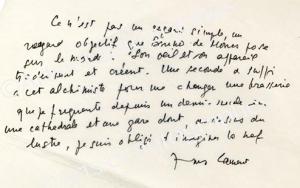 Ce n'est pas un regard simple, un
regard objectif que de Monès pose
sur le monde : Son œil et son appareil
choisissent et créent. Une seconde a suffi
à cet alchimiste pour me changer une brasserie
que je fréquente depuis un demi-siècle en
une cathédrale et une gare dont, au-dessus du
lustre, je suis obligé d'imaginer la nef